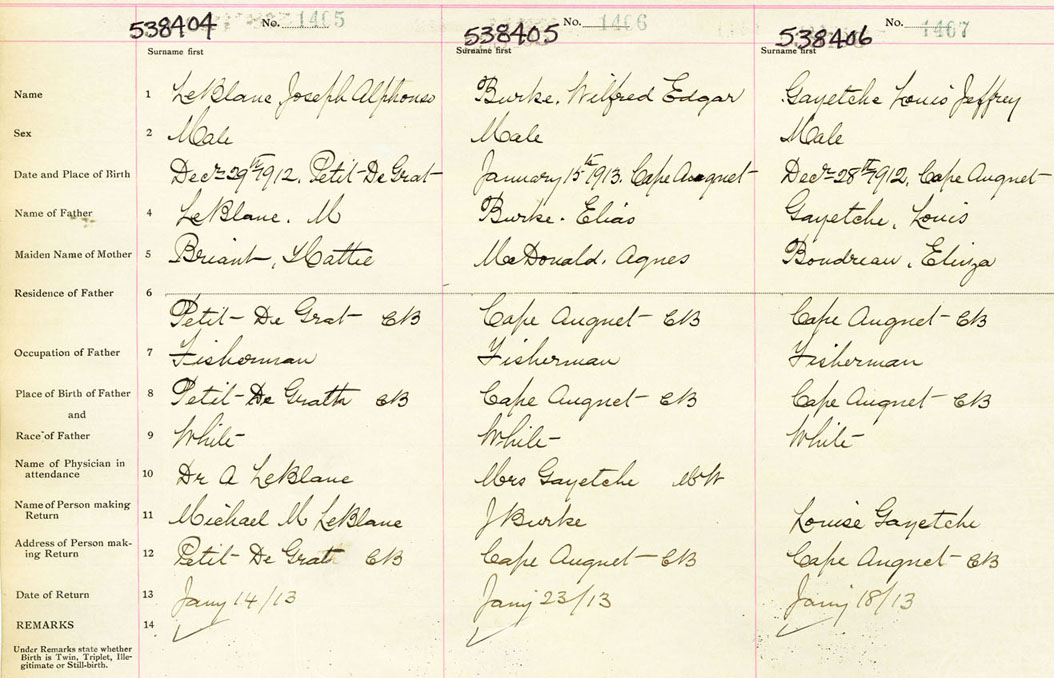 538404 No. 1405 538405 No. 1406 538406 No. 1407
Surname first Surname first Surname first
Name 1 LeBlanc Joseph Alphonso Burke. Wilfred Edgar Gayetche Louis Jeffrey
Sex 2 Male Male Male
Date and Place of Birth Decr 29th 1912. Petit-De Grat January 15th 1913. Cape Auguet Decr 28th 1912. Cape Auguet
Name of Father 4 LeBlanc. M Burke. Elias Gayetche, Louis
Maiden Name of Mother 5 Briant, Hattie McDonald. Agnes Boudreau, Eliza
Residence of Father 6
Petit-De Grat CB Cape Auguet CB Cape Auguet CB
Occupation of Father 7 Fisherman Fisherman Fisherman
Place of Birth of Father 8 Petit-De Grath CB Cape Auguet CB Cape Auguet CB
and
Race of Father 9 White White White
Name of Physician in
attendance 10 Dr A LeBlanc Mrs Gayetche MW
Name of Person making
Return 11 Michael M LeBlanc J Burke Louise Gayetche
Address of Person mak-
ing Return 12 Petit-De Grath CB Cape Auguet CB Cape Auguet CB
Date of Return 13 Jany 14/13 Jany 23/13 Jany 18/13
REMARKS 14
Under Remarks state whether
Birth is Twin, Triplet, Ille-
gitimate or Still-birth.